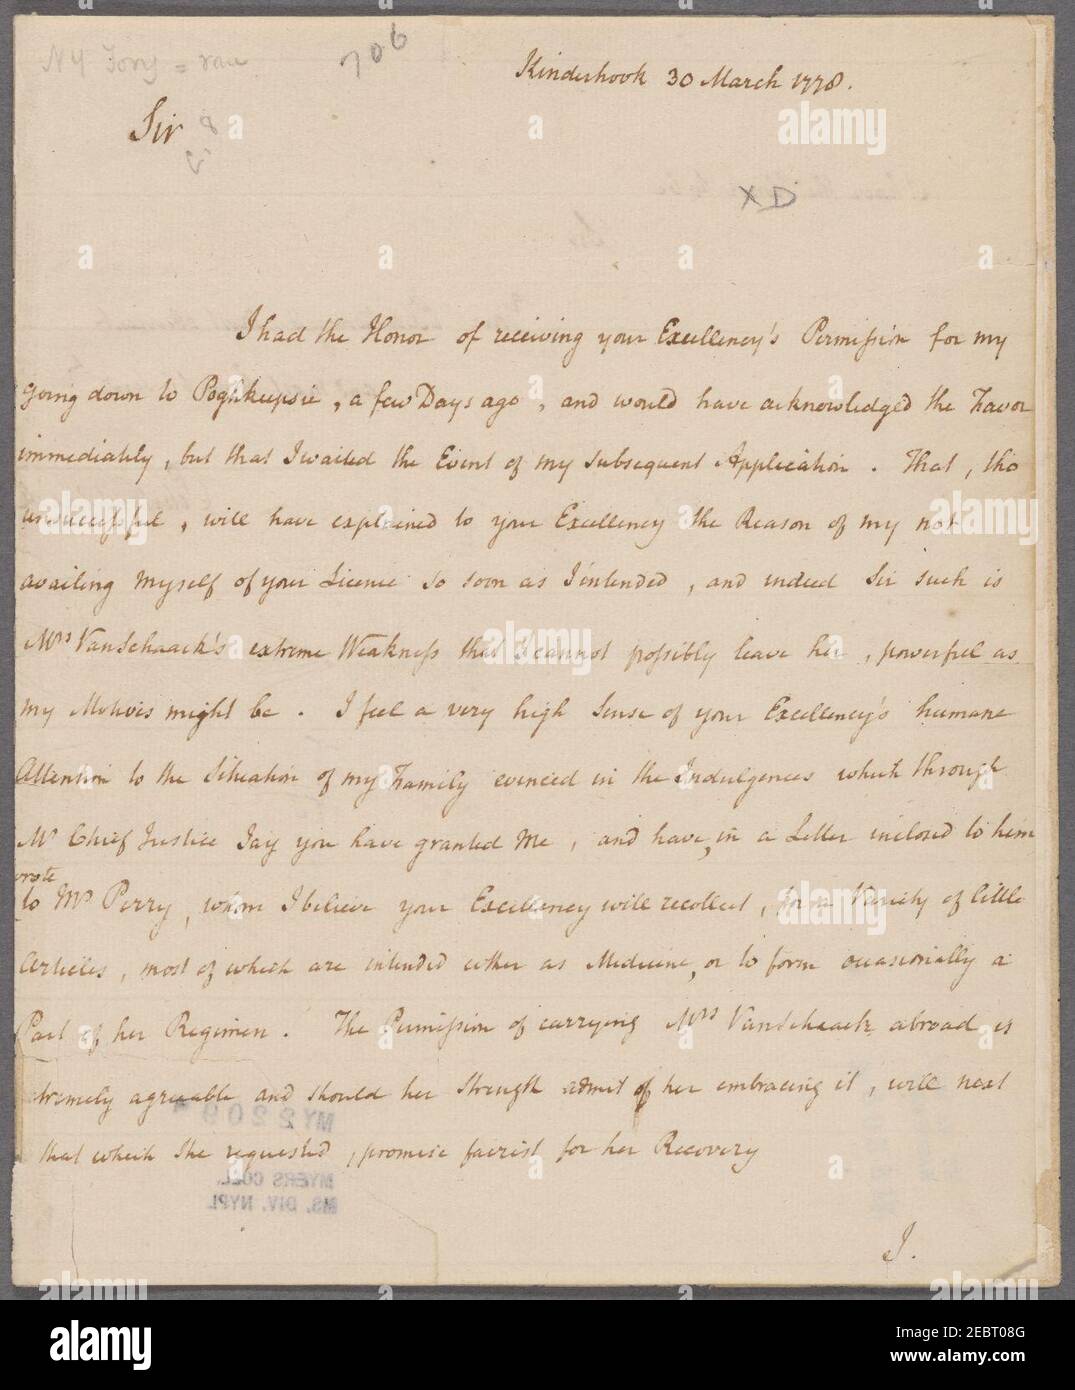 NY Tory = rare
706
Kinderhook 30 March 1778.
Sir
XD
I had the Honor of receiving your Excellency's Permission for my
going down to Poghkeepsie, a few Days ago, and would have acknowledged the Favor
immediately, but that I waited the Event of my subsequent Application. That, tho
unsuccessful, will have explained to your Excellency the Reason of my not
availing myself of your Licence so soon as I intended, and indeed Sir such is
Mrs VanSchaack's extreme Weakness that I cannot possibly leave her, powerful as
my Motives might be. I feel a very high Sense of your Excellency's humane
Attention to the Situation of my Family evinced in the Indulgences which through
Mr Chief Justice Jay you have granted Me, and have, in a Letter inclosed to him
wrote
to Mr Perry, whom I believe your Excellency will recollect, for a Variety of little
Articles, most of which are intended either as Medicine, or to form occasionally a
Part of her Regimen. The Permission of carrying Mrs VanSchaack abroad is
extremely agreeable and should her Strength admit of her embracing it, will next
that which She requested, promise fairest for her Recovery
MY2209
MYERS COLL.
MS. DIV. NYPL
I.
alamy
Image ID: 2EBT08G
www.alamy.com